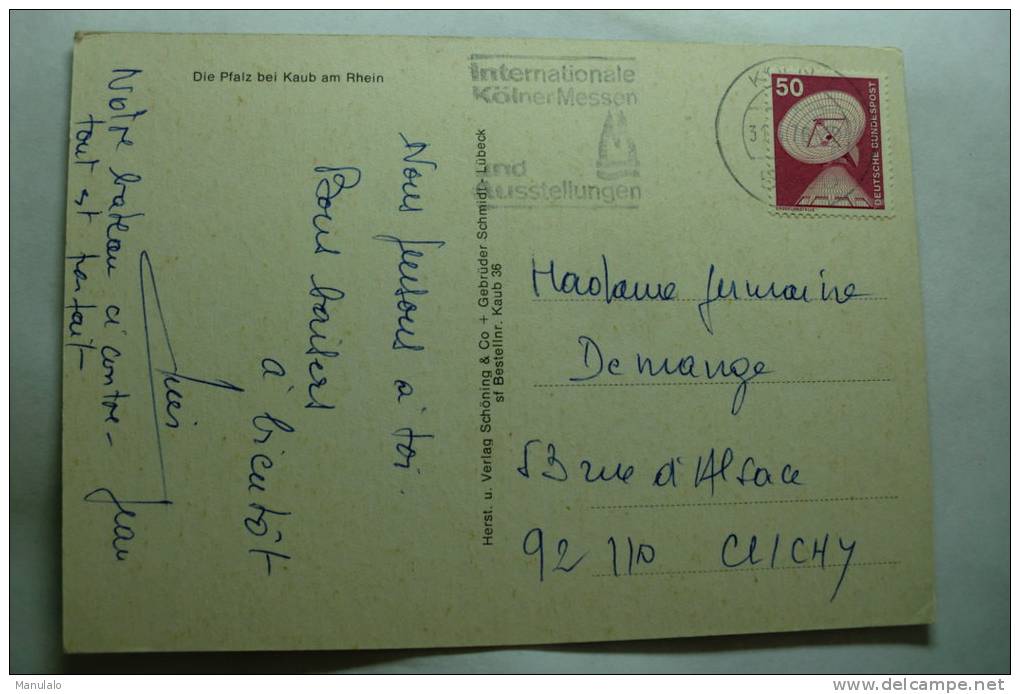 Die Pfalz bei Kaub am Rhein
Nous pensons à toi.
Bons baisers
à bientôt
Notre bateau ci contre -
tout est parfait -
Jean
Herst. u. Verlag Schöning & Co + Gebrüder Schmidt - Lübeck
sf Bestellnr. Kaub 36
Internationale
Kölner Messen
und
Ausstellungen
50
DEUTSCHE BUNDESPOST
Madame Germaine
Demange
53 rue d'Alsace
92 110 CLICHY
Manulalo
delcampe.net